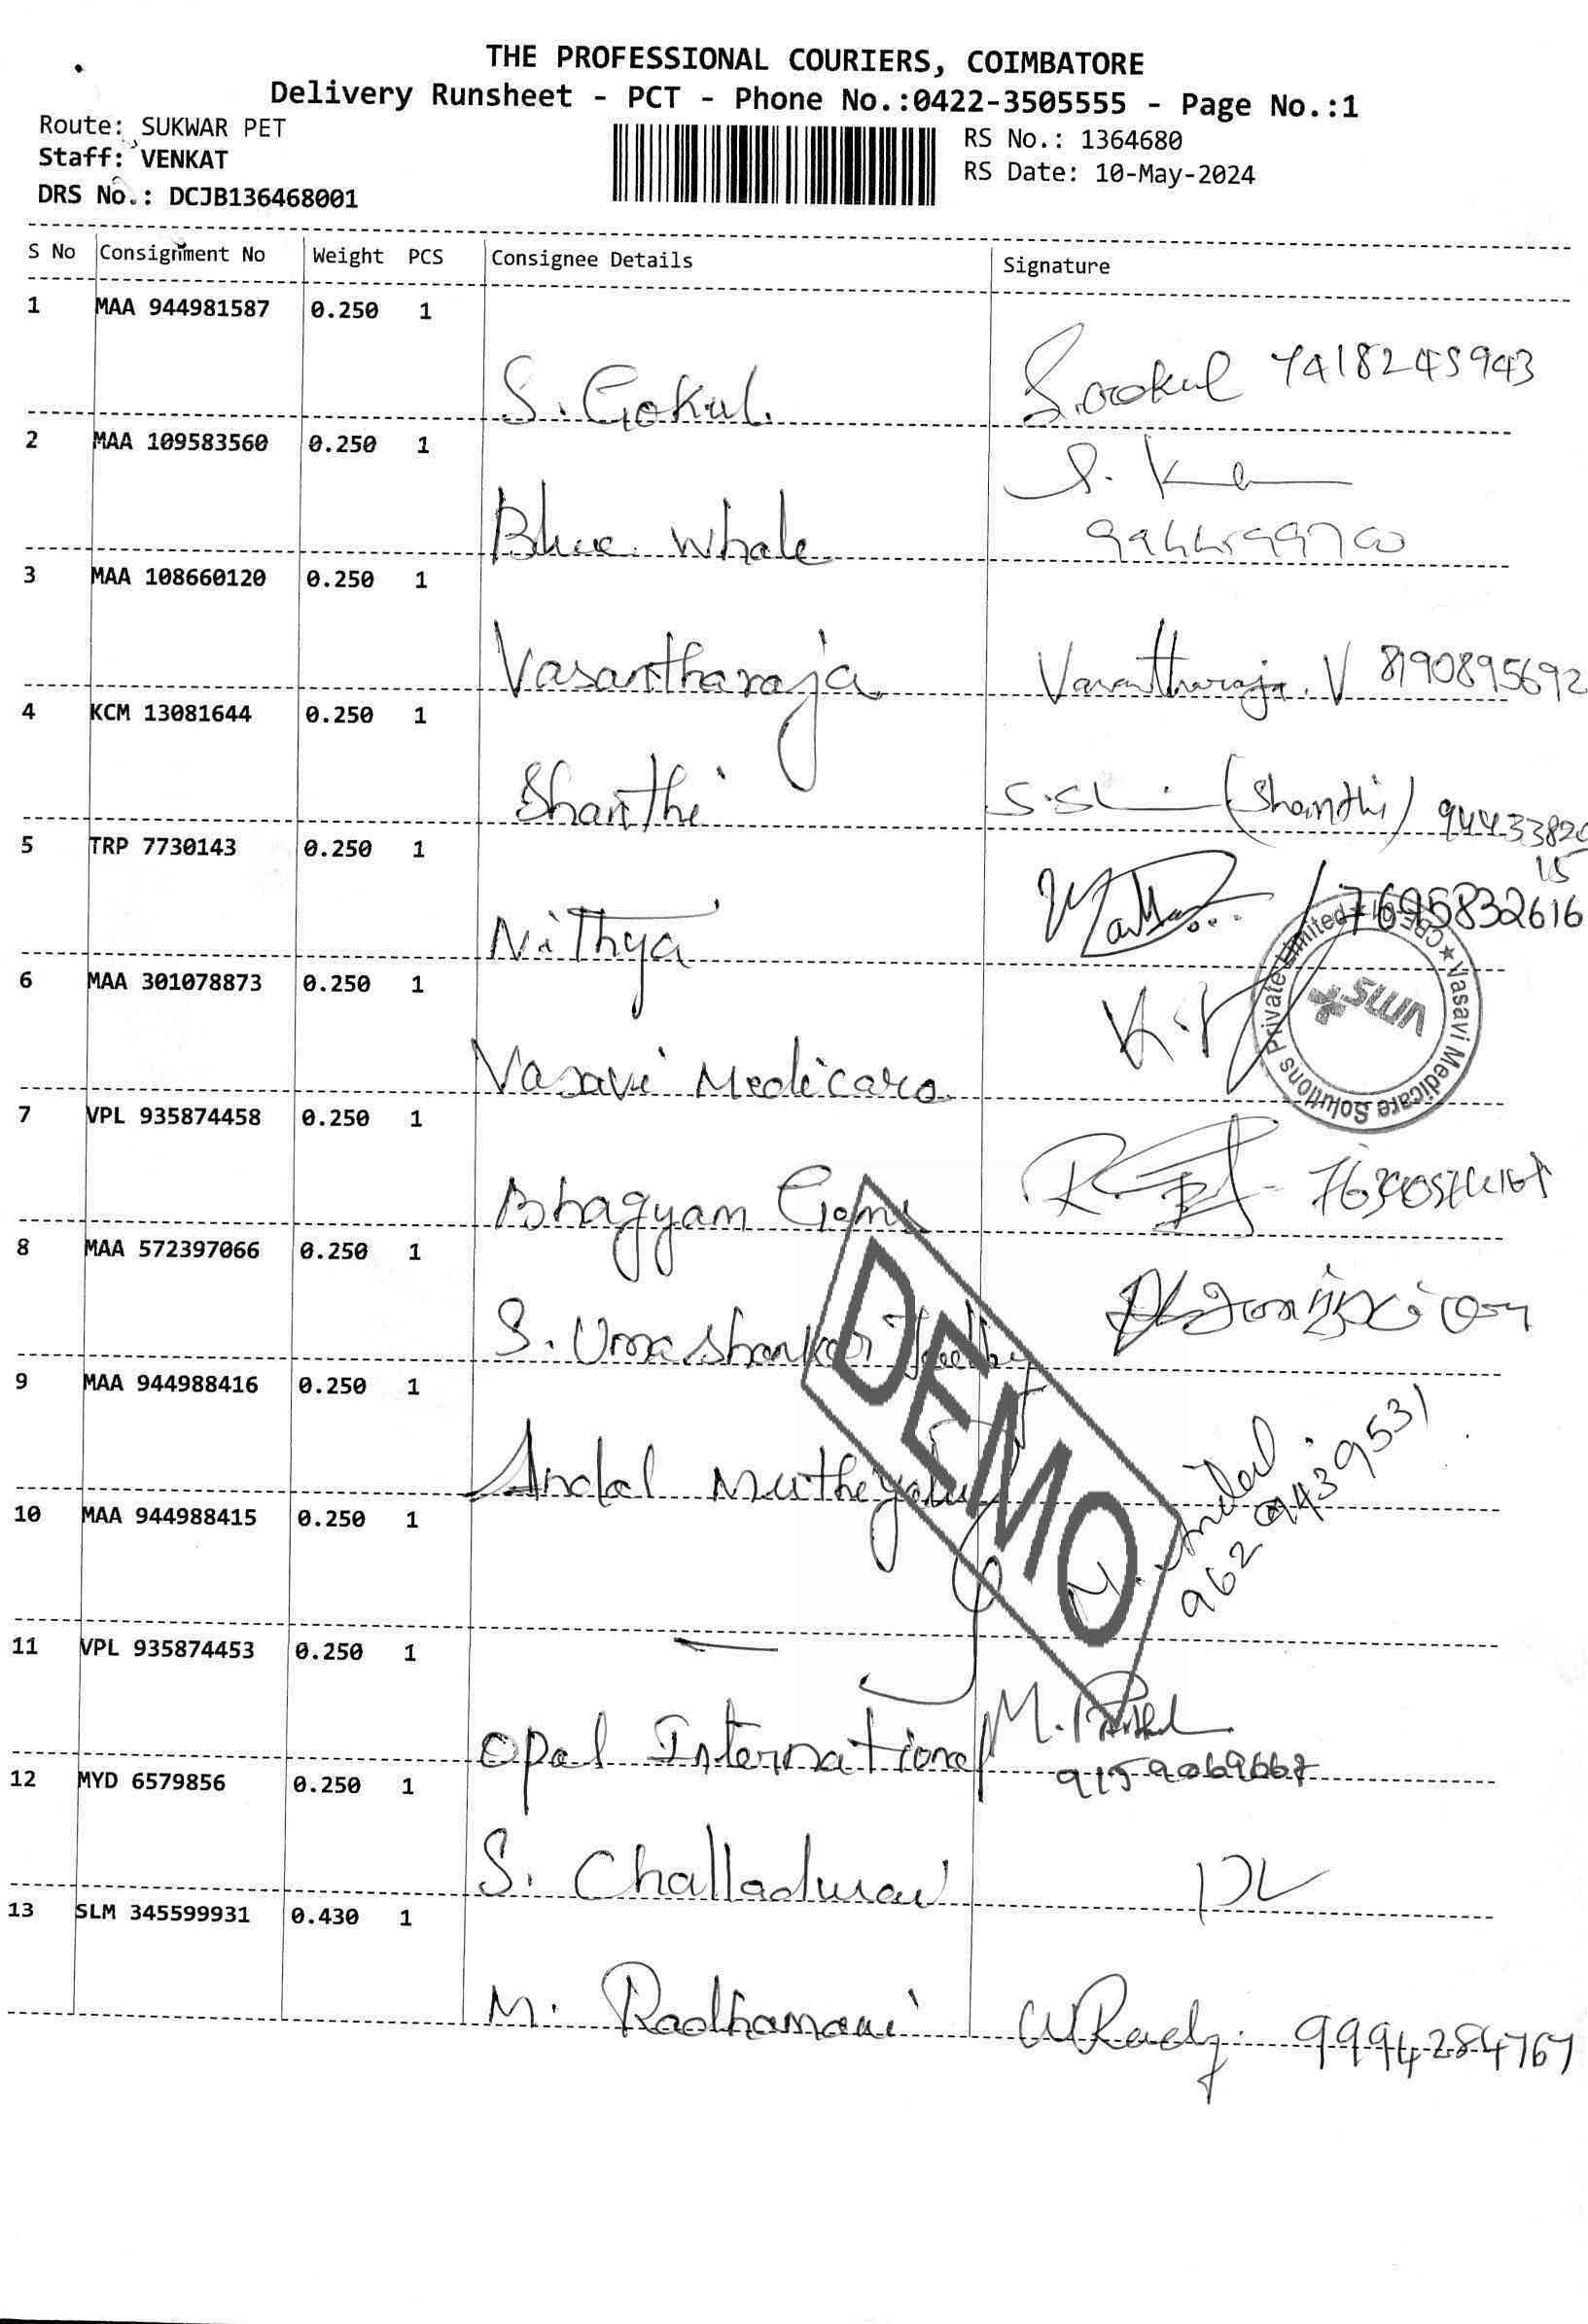 THE PROFESSIONAL COURIERS, COIMBATORE
Delivery Runsheet - PCT - Phone No.:0422-3505555 - Page No.:1
Route: SUKWAR PET
RS No.: 1364680
Staff: VENKAT
RS Date: 10-May-2024
DRS No.: DCJB136468001
S No Consignment No Weight PCS Consignee Details Signature
1 MAA 944981587 0.250 1
S. Gokul.
2 MAA 109583560 0.250 1
Blue whale
3 MAA 108660120 0.250 1
Vasantharaja Vasantharaja. V 8190895692
4 KCM 13081644 0.250 1
Shanthi (Shanthi) 94433820
15
5 TRP 7730143 0.250 1
Nithya 7695832616
6 MAA 301078873 0.250 1
Vasavi Medicare
Vasavi Medicare Solutions Private Limited
VMS
7 VPL 935874458 0.250 1
Bhagyam
8 MAA 572397066 0.250 1
S. Umashankar
9 MAA 944988416 0.250 1
Andal
9629439531
10 MAA 944988415 0.250 1
DEMO
11 VPL 935874453 0.250 1
Opal International M.
9159069667
12 MYD 6579856 0.250 1
S.
13 SLM 345599931 0.430 1
M. Radhamani 9994284767